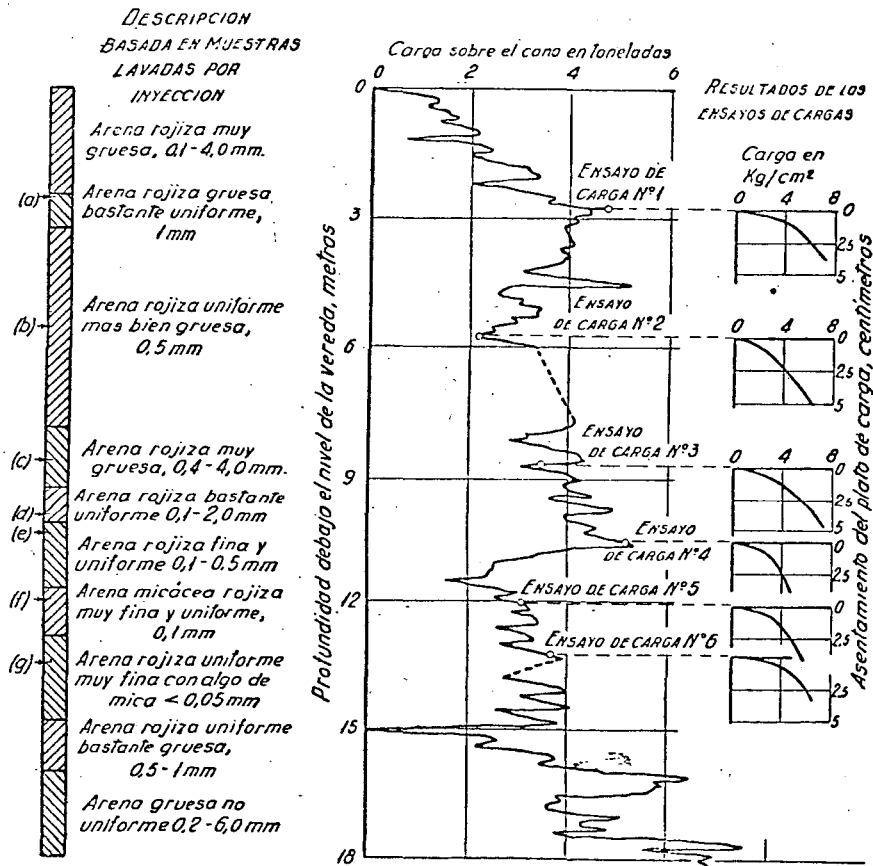 DESCRIPCION
BASADA EN MUESTRAS
LAVADAS POR
INYECCION
Arena rojiza muy
gruesa, 0,1-4,0 mm.
(a)
Arena rojiza gruesa
bastante uniforme,
1 mm
(b)
Arena rojiza uniforme
mas bien gruesa,
0.5 mm
(c)
Arena rojiza muy
gruesa, 0,4-4,0 mm.
(d)
Arena rojiza bastante
uniforme 0,1-2,0 mm
(e)
Arena rojiza fina y
uniforme 0,1-0.5 mm
(f)
Arena micácea rojiza
muy fina y uniforme,
0,1 mm
(g)
Arena rojiza uniforme
muy fina con algo de
mica < 0,05 mm
Arena rojiza uniforme
bastante gruesa,
0.5-1 mm
Arena gruesa no
uniforme 0.2-6,0 mm
Profundidad debajo el nivel de la vereda, metros
Carga sobre el cono en toneladas
0 2 4 6
0
3
6
9
12
15
18
ENSAYO DE
CARGA Nº1
ENSAYO
DE CARGA Nº2
ENSAYO
DE CARGA Nº3
ENSAYO
DE CARGA Nº4
ENSAYO DE CARGA Nº5
ENSAYO DE CARGA Nº6
RESULTADOS DE LOS
ENSAYOS DE CARGAS
Carga en
Kg/cm²
0 4 8
0
2.5
5
0 4 8
0
2.5
5
0 4 8
0
2.5
5
0
2.5
0
2.5
2.5
5
Asentamiento del plato de carga, centímetros